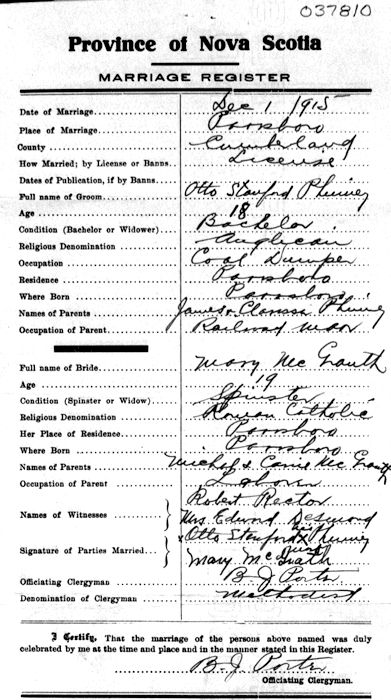 037810
Province of Nova Scotia
MARRIAGE REGISTER
Date of Marriage Dec 1 1915
Place of Marriage Parrsboro
County Cumberland
How Married; by License or Banns License
Dates of Publication, if by Banns
Full name of Groom Otto Stanford Phinney
Age 18
Condition (Bachelor or Widower) Bachelor
Religious Denomination Anglican
Occupation Coal Dumper
Residence Parrsboro
Where Born Parrsboro
Names of Parents James & Clarissa Phinney
Occupation of Parent Railroad Man
Full name of Bride Mary Mc Grath
Age 19
Condition (Spinster or Widow) Spinster
Religious Denomination Roman Catholic
Her Place of Residence Parrsboro
Where Born Parrsboro
Names of Parents & Carrie Mc Grath
Occupation of Parent Laborer
Names of Witnesses Robert Rector
Mrs. Edward Desmond
Signature of Parties Married Otto Stanford his x Phinney
Mary McGrath
Officiating Clergyman B J Porter
Denomination of Clergyman Methodist
I Certify, That the marriage of the persons above named was duly
celebrated by me at the time and place and in the manner stated in this Register.
B. J. Porter
Officiating Clergyman.